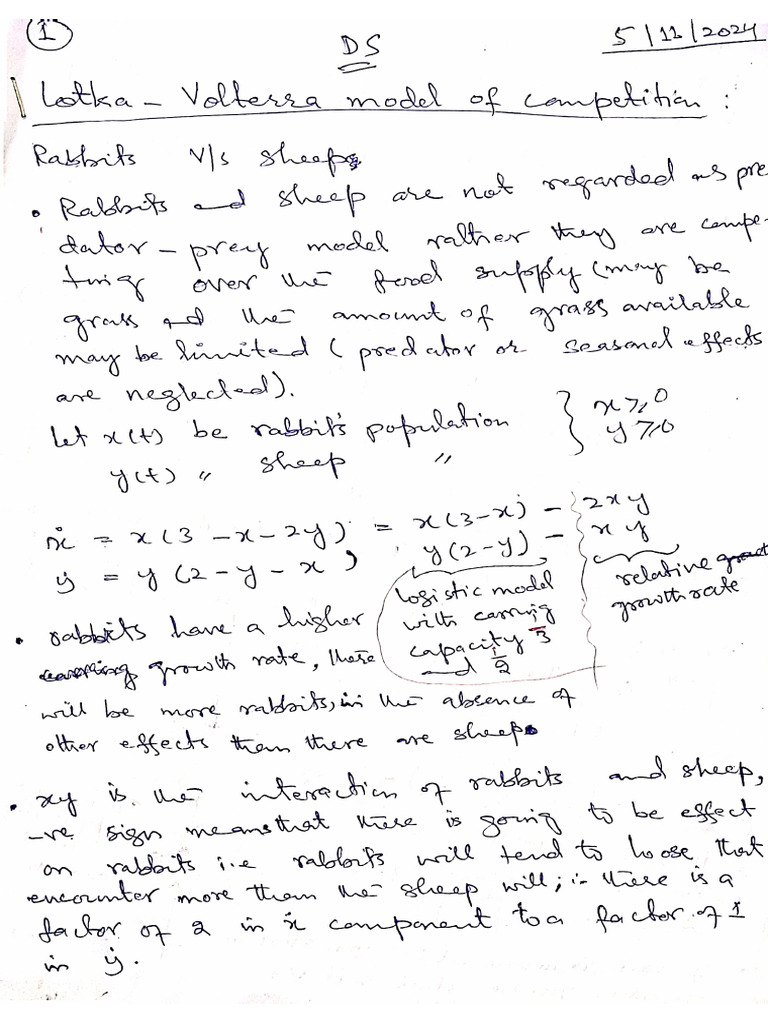 1
DS
5/11/2024
Lotka - Volterra model of competition :
Rabbits V/s sheep
• Rabbits and sheep are not regarded as pre
dator - prey model rather they are compe-
ting over the food supply (may be
grass and the amount of grass available
may be limited (predator or seasonal effects
are neglected).
Let x(t) be rabbit's population } x ≥ 0
y(t) " sheep " y ≥ 0
ẋ = x(3 - x - 2y) = x(3-x) - 2xy
ẏ = y(2 - y - x) , y(2-y) - xy
logistic model with carring capacity 3 and 2
relative growth rate
• rabbits have a higher
growth rate, there
will be more rabbits, in the absence of
other effects than there are sheep.
• xy is the interaction of rabbits and sheep,
-ve sign means that there is going to be effect
on rabbits i.e rabbits will tend to loose that
encounter more than the sheep will; ∵ there is a
factor of 2 in ẋ component to a factor of 1
in ẏ.